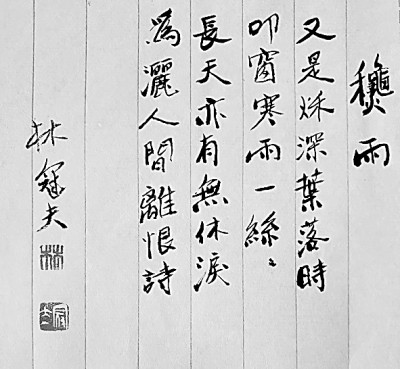 龝雨
又是秌深葉落時
叩窗寒雨一絲〻
長天亦有無休淚
為灑人間離恨詩
林冠夫
林